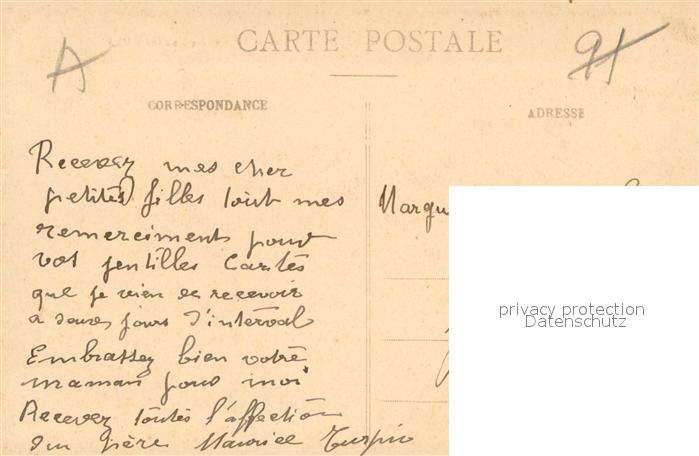 A
CARTE POSTALE
91
CORRESPONDANCE
ADRESSE
Recevez mes cher
petites filles tout mes
remerciments pour
vos jentilles Cartes
que je vien de recevoir
a deux jours d'interval
Embrassez bien votre
maman pour moi
Recevez toutes l'affection
d'un Père Maurice Turpin
Margu
privacy protection
Datenschutz